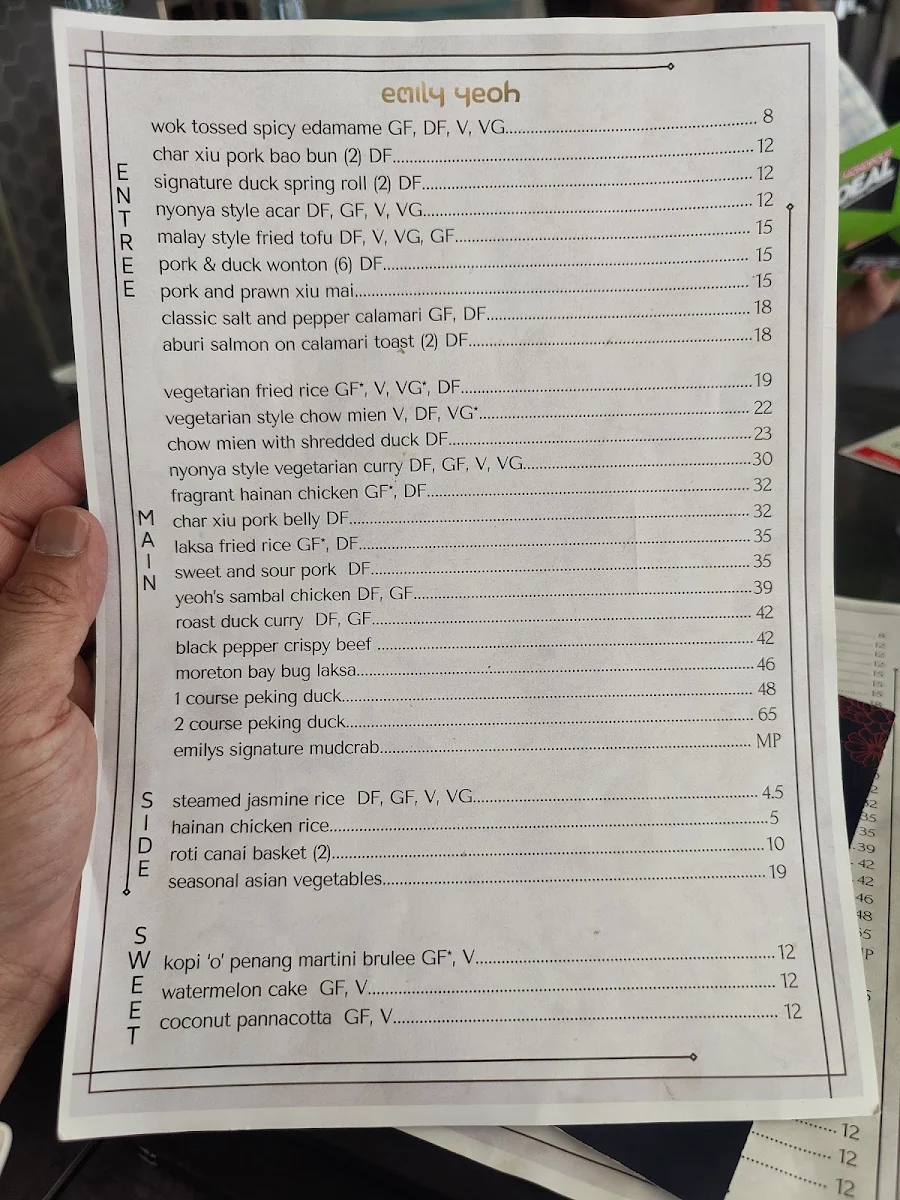 emily yeoh
ENTREE
wok tossed spicy edamame GF, DF, V, VG........ 8
char xiu pork bao bun (2) DF........ 12
signature duck spring roll (2) DF........ 12
nyonya style acar DF, GF, V, VG........ 12
malay style fried tofu DF, V, VG, GF........ 15
pork & duck wonton (6) DF........ 15
pork and prawn xiu mai........ 15
classic salt and pepper calamari GF, DF........ 18
aburi salmon on calamari toast (2) DF........ 18
MAIN
vegetarian fried rice GF*, V, VG*, DF........ 19
vegetarian style chow mien V, DF, VG*........ 22
chow mien with shredded duck DF........ 23
nyonya style vegetarian curry DF, GF, V, VG........ 30
fragrant hainan chicken GF*, DF........ 32
char xiu pork belly DF........ 32
laksa fried rice GF*, DF........ 35
sweet and sour pork DF........ 35
yeoh's sambal chicken DF, GF........ 39
roast duck curry DF, GF........ 42
black pepper crispy beef ........ 42
moreton bay bug laksa........ 46
1 course peking duck........ 48
2 course peking duck........ 65
emilys signature mudcrab........ MP
SIDE
steamed jasmine rice DF, GF, V, VG........ 4.5
hainan chicken rice........ 5
roti canai basket (2)........ 10
seasonal asian vegetables........ 19
SWEET
kopi 'o' penang martini brulee GF*, V........ 12
watermelon cake GF, V........ 12
coconut pannacotta GF, V........ 12
DEAL
35
35
39
42
42
46
48
12
12
12